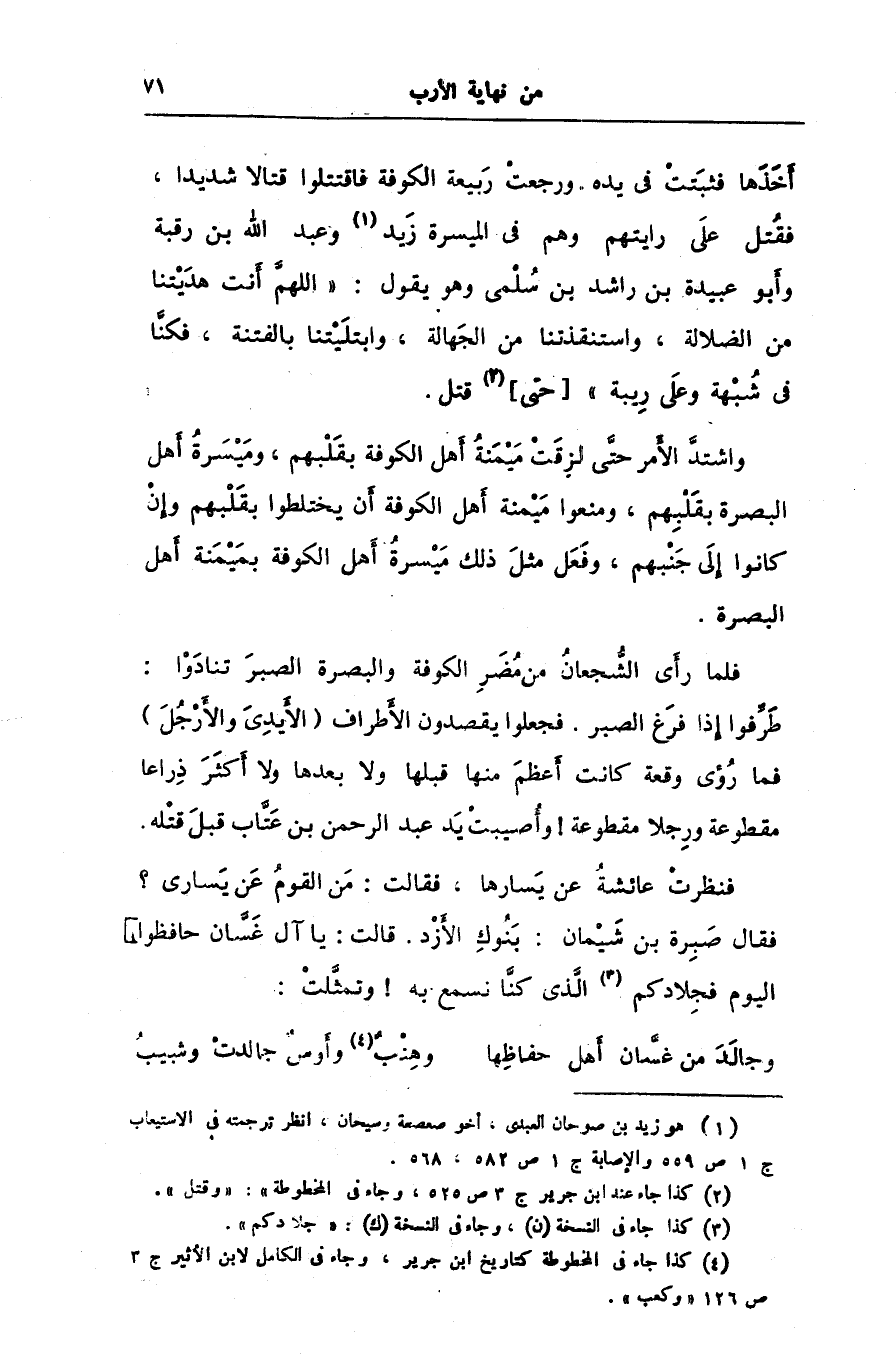 من نهاية الأرب ٧١
أَخَذَها فثبَتتْ فى يده. ورجعتْ رَبيعة الكوفة فاقتتلوا قتالا شديدا ،
فقُتل علَى رايتهم وهم فى الميسرة زَيد (١) وعبد الله بن رقبة
وأَبو عبيدة بن راشد بن سُلْمى وهو يقول : « اللهمَّ أَنت هدَيْتنا
من الضلالة ، واستنقذتنا من الجَهالة ، وابتلَيْتنا بالفتنة ، فكنَّا
فى شُبْهة وعلَى رِيبة » [ حتّى ] (٢) قتل .
واشتدَّ الأَمر حتَّى لزِقَتْ مَيْمَنةُ أَهل الكوفة بقَلْبهم ، ومَيْسَرةُ أَهل
البصرة بقَلْبِهم ، ومنعوا مَيْمنة أَهل الكوفة أَن يختلطوا بقَلْبهم وإِنْ
كانوا إِلَى جَنْبهم ، وفَعَل مثلَ ذلك مَيْسرةُ أَهل الكوفة بمَيْمَنة أَهل
البصرة .
فلما رأَى الشُّجعانُ من مُضَرِ الكوفة والبصرة الصبرَ تنادَوْا :
طَرِّفوا إِذا فرَغ الصبر . فجعلوا يقصدون الأَطراف ( الأَيدِىَ والأَرْجُلَ )
فما رُؤى وقعة كانت أَعظمَ منها قبلها ولا بعدها ولا أَكثَرَ ذِراعا
مقطوعة ورِجلا مقطوعة ! وأُصيبتْ يَد عبد الرحمن بن عَتَّاب قبلَ قتْله.
فنظرتْ عائشةُ عن يَسارها ، فقالت : مَن القومُ عَن يَسارى ؟
فقال صَبِرة بن شَيْمان : بَنُوكِ الأَزْد . قالت : يا آل غَسَّان حافظوا
اليوم فجِلادكم (٣) الَّذى كنَّا نسمع به ! وتمثَّلتْ :
وجالَدَ من غسَّان أَهل حفاظِها وهِنْبٌ (٤) وأَوسٌ جالدتْ وشبيبُ
(١) هو زيد بن صوحان العبدى ، أخو صعصعة وسيحان ، انظر ترجمته فى الاستيعاب
ج ١ ص ٥٥٩ والإصابة ج ١ ص ٥٨٢ ، ٥٦٨ .
(٢) كذا جاء عند ابن جرير ج ٣ ص ٥٢٥ ، وجاء فى المخطوطة» : « وقتل » .
(٣) كذا جاء فى النسخة (ن) ، وجاء فى النسخة (ك) : « جلادكم » .
(٤) كذا جاء فى المخطوطة كتاريخ ابن جرير ، وجاء فى الكامل لابن الأثير ج ٣
ص ١٢٦ « وكعب » .